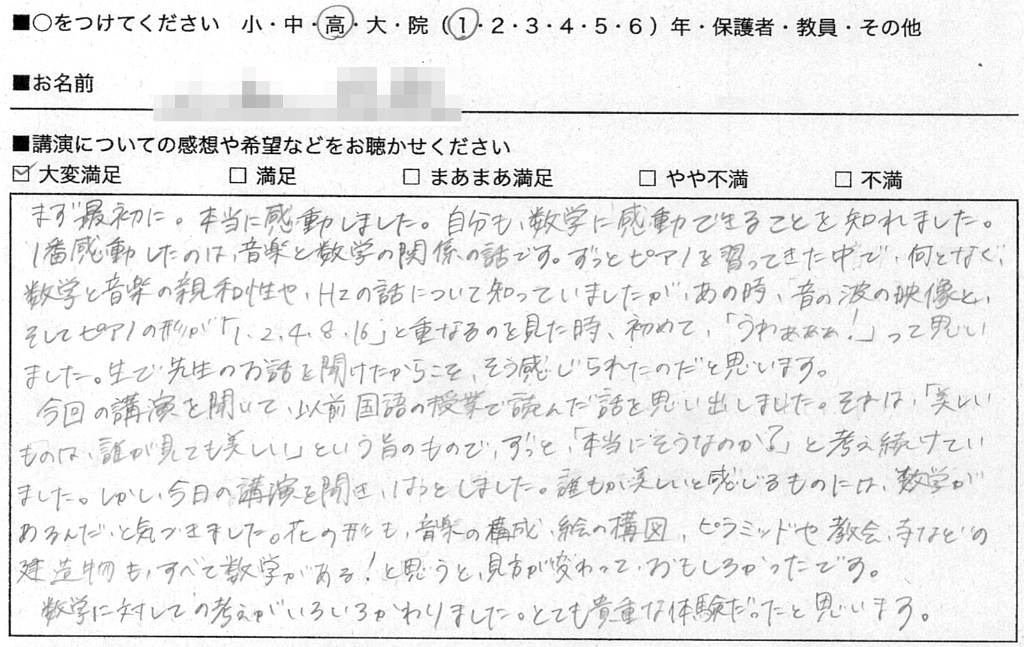 ■○をつけてください 小・中・高・大・院（1・2・3・4・5・6）年・保護者・教員・その他
■お名前
■講演についての感想や希望などをお聴かせください
☑ 大変満足 □ 満足 □ まあまあ満足 □ やや不満 □ 不満
まず最初に。本当に感動しました。自分も、数学に感動できることを知れました。
1番感動したのは、音楽と数学の関係の話です。ずっとピアノを習ってきた中で、何となく、
数学と音楽の親和性や、Hzの話について知っていましたが、あの時、音の波の映像と、
そしてピアノの形が「1、2、4、8、16」と重なるのを見た時、初めて、「うわぁぁぁ！」って思い
ました。生で先生のお話を聞けたからこそ、そう感じられたのだと思います。
今回の講演を聞いて、以前国語の授業で読んだ話を思い出しました。それは、「美しい
ものは、誰が見ても美しい」という旨のもので、ずっと、「本当にそうなのか？」と考え続けてい
ました。しかし、今日の講演を聞き、はっとしました。誰もが美しいと感じるものには、数学が
あるんだ、と気づきました。花の形も、音楽の構成、絵の構図、ピラミッドや教会、寺などの
建造物も、すべて数学がある！と思うと、見方が変わって、おもしろかったです。
数学に対しての考えがいろいろかわりました。とても貴重な体験だったと思います。